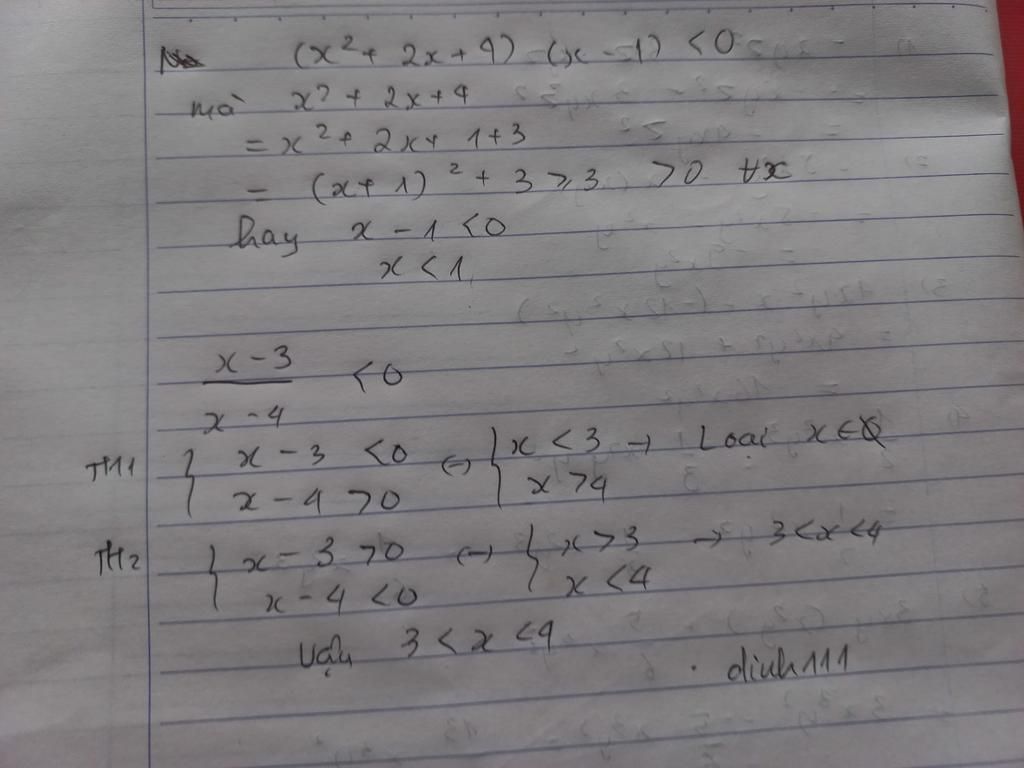 (x² + 2x + 4) (x - 1) < 0
mà x² + 2x + 4
= x² + 2x + 1 + 3
= (x + 1)² + 3 ⩾ 3 > 0 ∀x
hay x - 1 < 0
x < 1
x - 3
< 0
x - 4
TH1 { x - 3 < 0 ↔ { x < 3 → Loại x ∈ ∅
x - 4 > 0 x > 4
TH2 { x - 3 > 0 ↔ { x > 3 → 3 < x < 4
x - 4 < 0 x < 4
Vậy 3 < x < 4
. dinh111